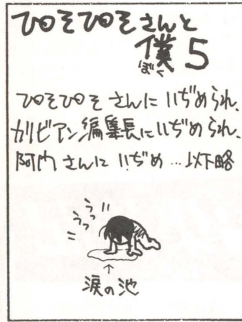 ぴぃそぴぃそさんと
僕5
ぼく
ぴぃそぴぃそさんにいぢめられ、
カリビアン編集長にいぢめられ、
阿内さんにいぢめ…以下略
うっ
うっ
↑
涙の池